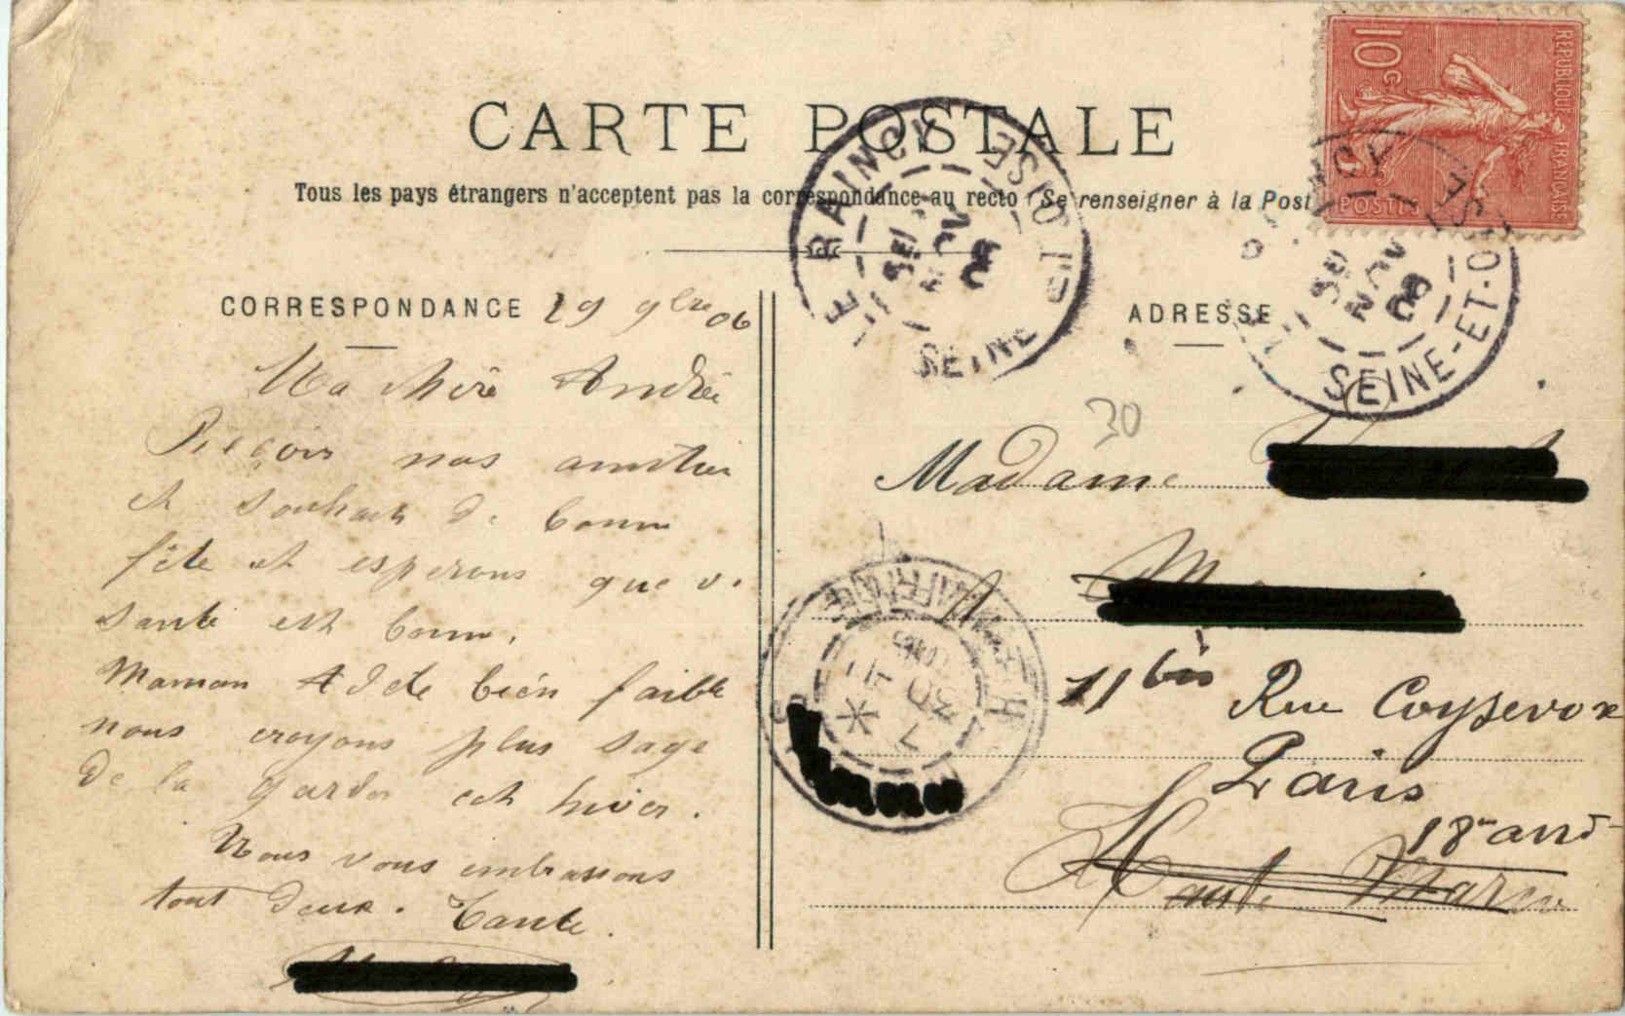 CARTE POSTALE
Tous les pays étrangers n'acceptent pas la correspondance au recto (Se renseigner à la Post
RÉPUBLIQUE FRANÇAISE
10 c
POSTES
LE RAINCY
SEINE-ET-OISE
NOV
06
SEINE-ET-OISE
NOV
06
CORRESPONDANCE
29 9bre 06
Ma chère Andrée
Reçois nos amitiés
et souhaits de bonne
fête et esperons que v.
santé est bonne.
Maman Adele bien faible
nous croyons plus sage
de la garder cet hiver.
Nous vous embrassons
tout deux. Tante.
ADRESSE
30
Madame
11 bis Rue Coysevox
Paris
18 arrt
Haute Marne
HTE-MARNE
30